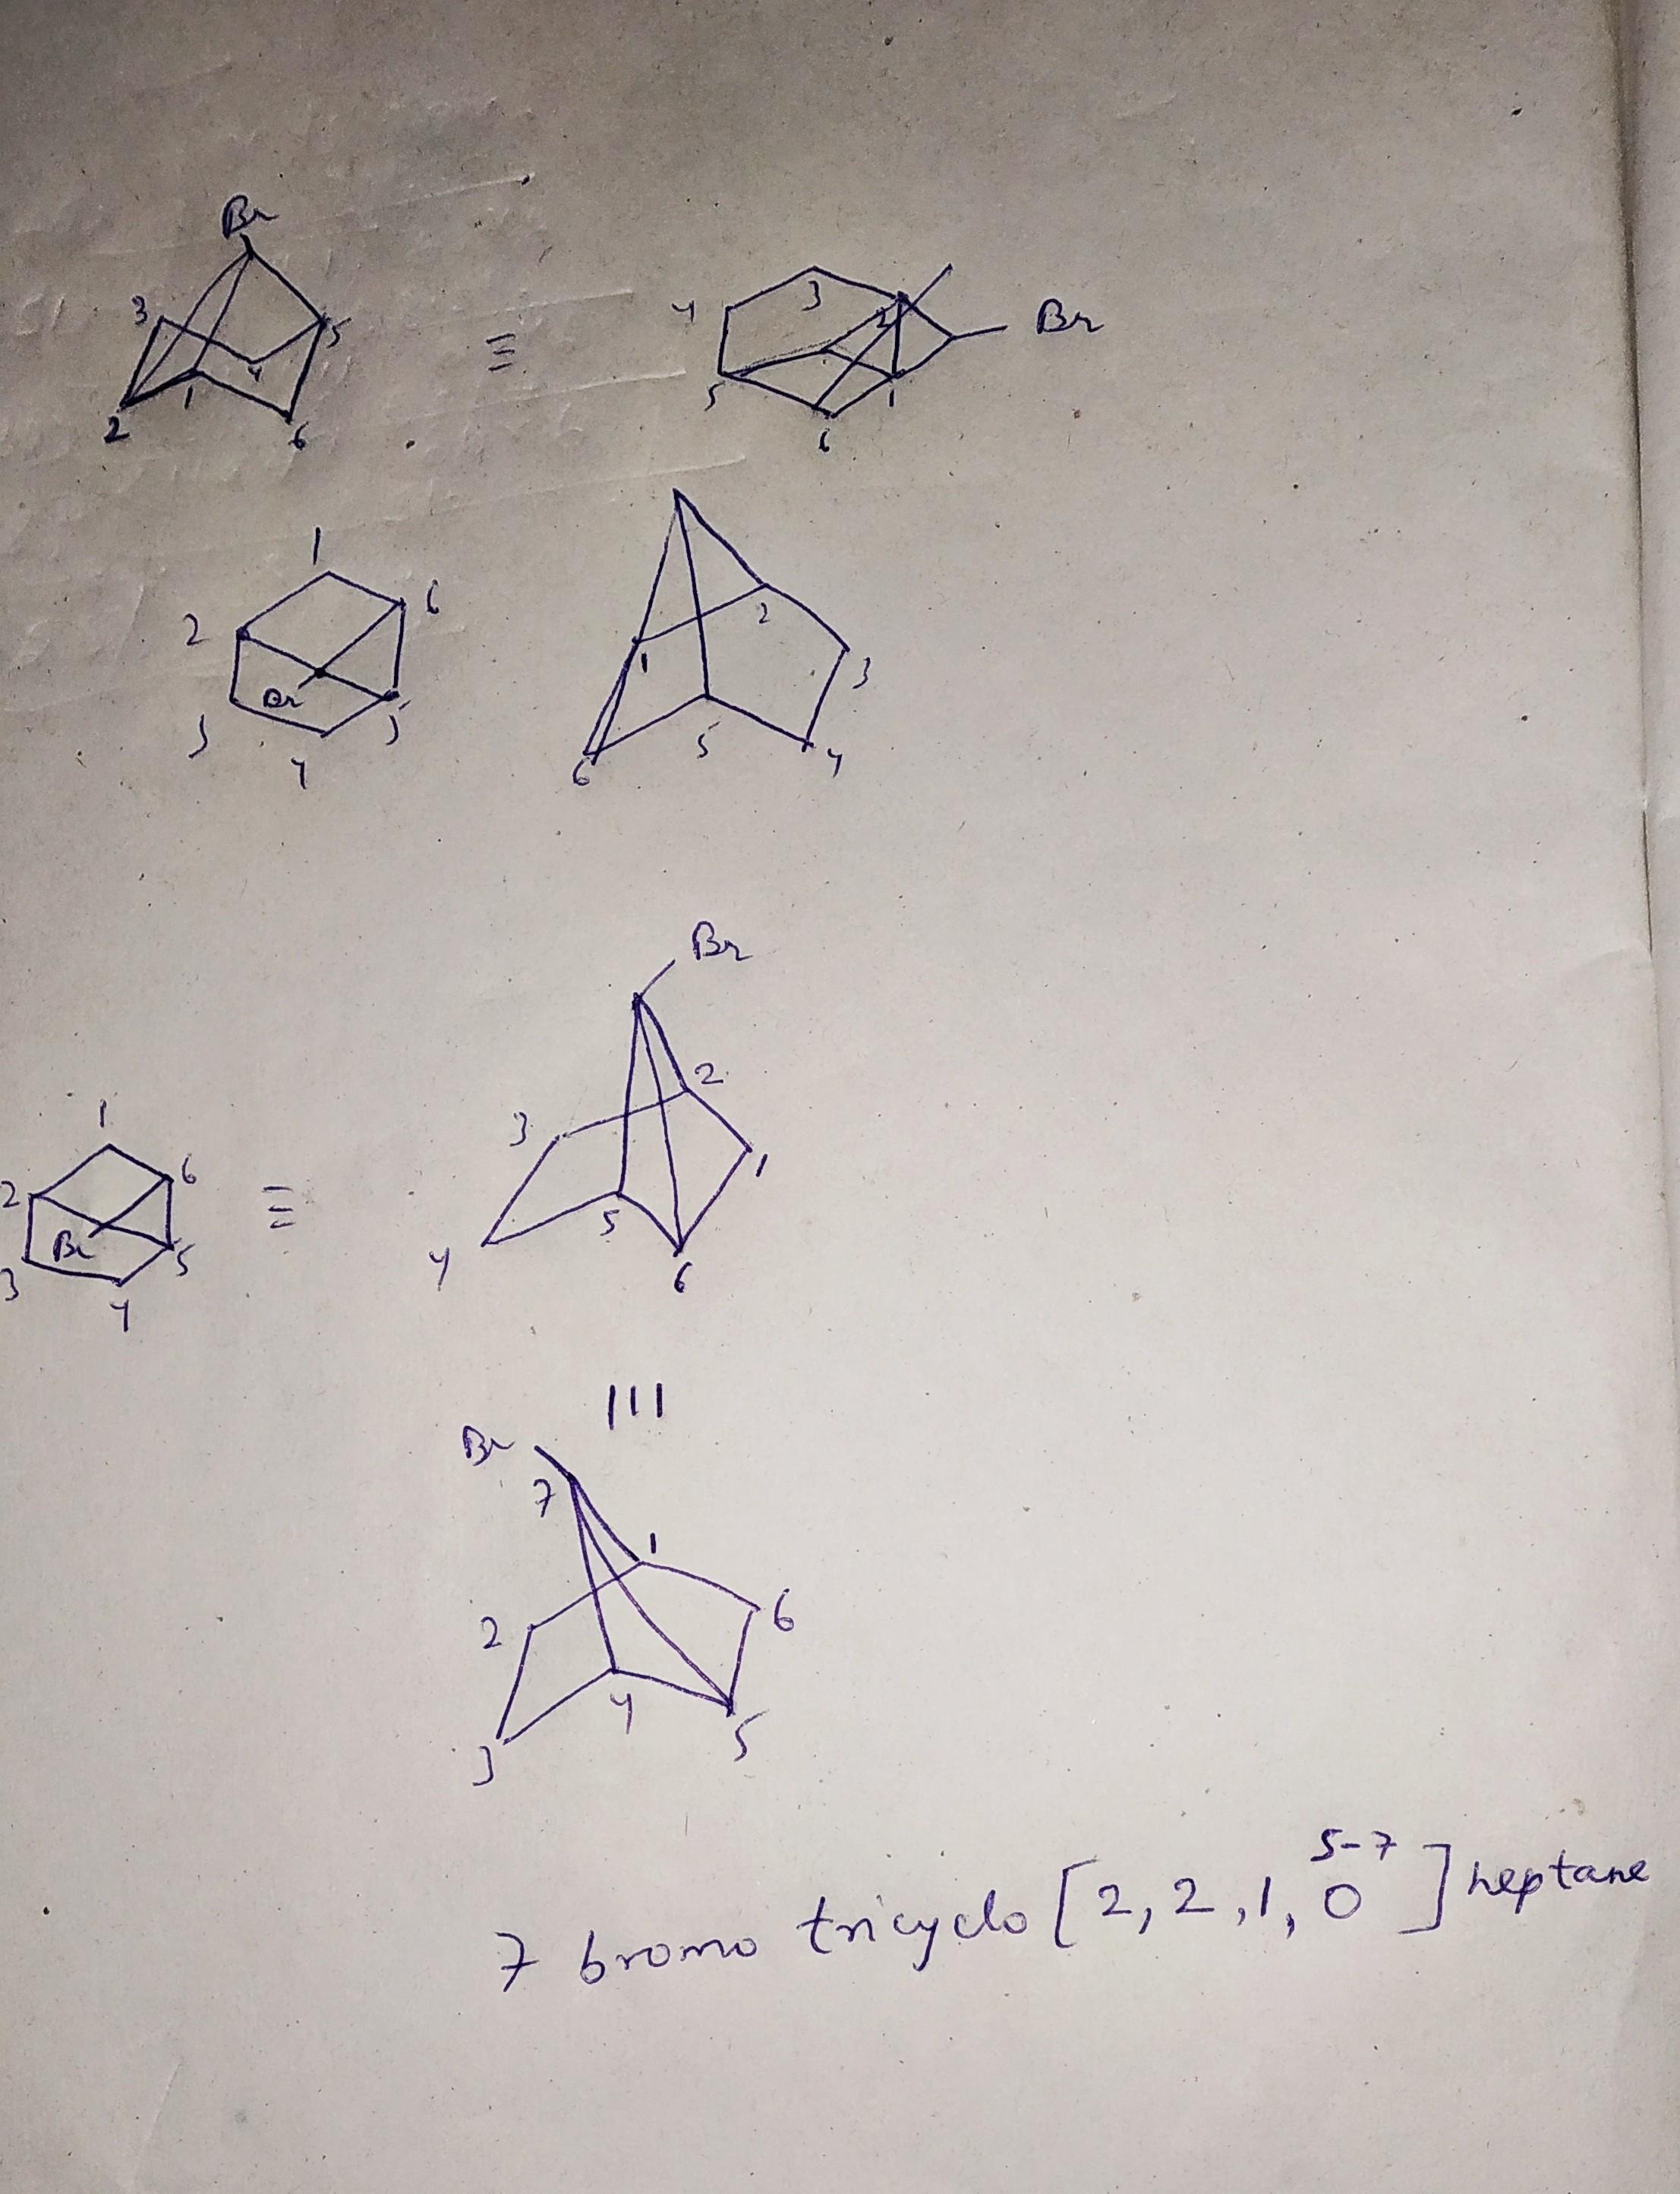 Br
3
5
4
1
2
6
≡
4
3
2
Br
5
1
6
1
2
6
Br
3
5
4
1
2
3
5
6
4
Br
2
3
1
5
4
6
1
2
6
≡
Br
3
5
4
|||
Br
7
1
2
6
4
3
5
5-7
7 bromo tricyclo [2, 2, 1, 0] heptane